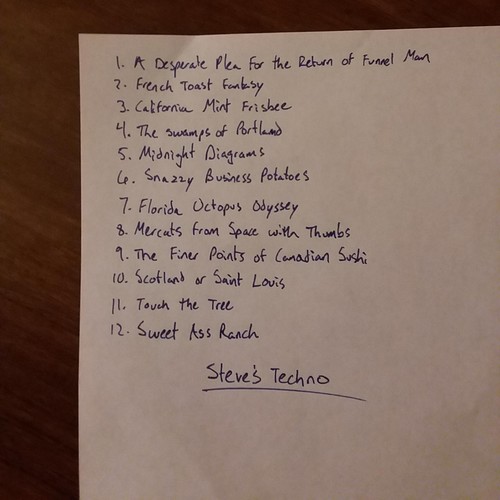 1. A Desperate Plea For the Return of Funnel Man
2. French Toast Fantasy
3. California Mint Frisbee
4. The swamps of Portland
5. Midnight Diagrams
6. Snazzy Business Potatoes
7. Florida Octopus Odyssey
8. Mercats from Space with Thumbs
9. The Finer Points of Canadian Sushi
10. Scotland or Saint Louis
11. Touch the Tree
12. Sweet Ass Ranch
Steve's Techno